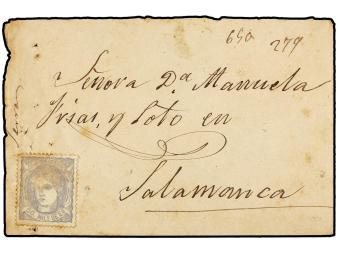 650 279
Señora Dª Manuela
Frias, y Soto en
Salamanca